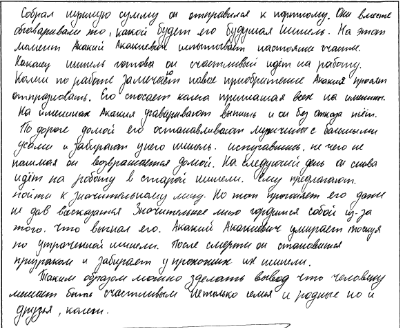 Собрал нужную сумму он отправился к портному. Они вместе
обговаривают то, какой будет его будущая шинель. На этот
момент Акакий Акакиевич испытывает настоящее счастье.
Наконец шинель готова он счастливый идёт на работу.
Колеги по работе замечают новое приобретение Акакия просят
отпраздновать. Его спасает колега приглашая всех на именины.
На именинах Акакия уговаривают выпить и он без отказа пьёт.
По дороге домой его останавливают мужчины с большими
усами и забирают у него шинель. испугавшись, не чего не
понимая он возвращается домой. На следующий день он снова
идёт на работу в старой шинели. Ему предлагают
пойти к Значительному лицу. Но тот прогоняет его даже
не дав высказаться Значительное лицо гордился собой из-за
того. что выгнал его. Акакий Акакиевич умирает тоскуя
по утраченной шинели. После смерти он становится
призраком и забирает у прохожих их шинели.
Таким образом можно зделать вывод что человеку
мешает быть счастливым не только семья и родные но и
друзья, колеги.